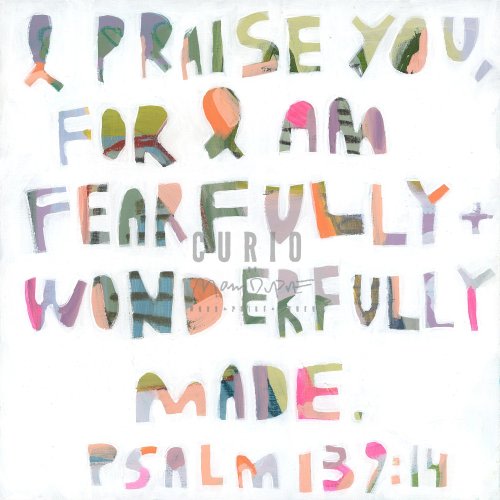 I PRAISE YOU,
FOR I AM
FEARFULLY +
CURIO
WONDERFULLY
MADE.
PSALM 139:14